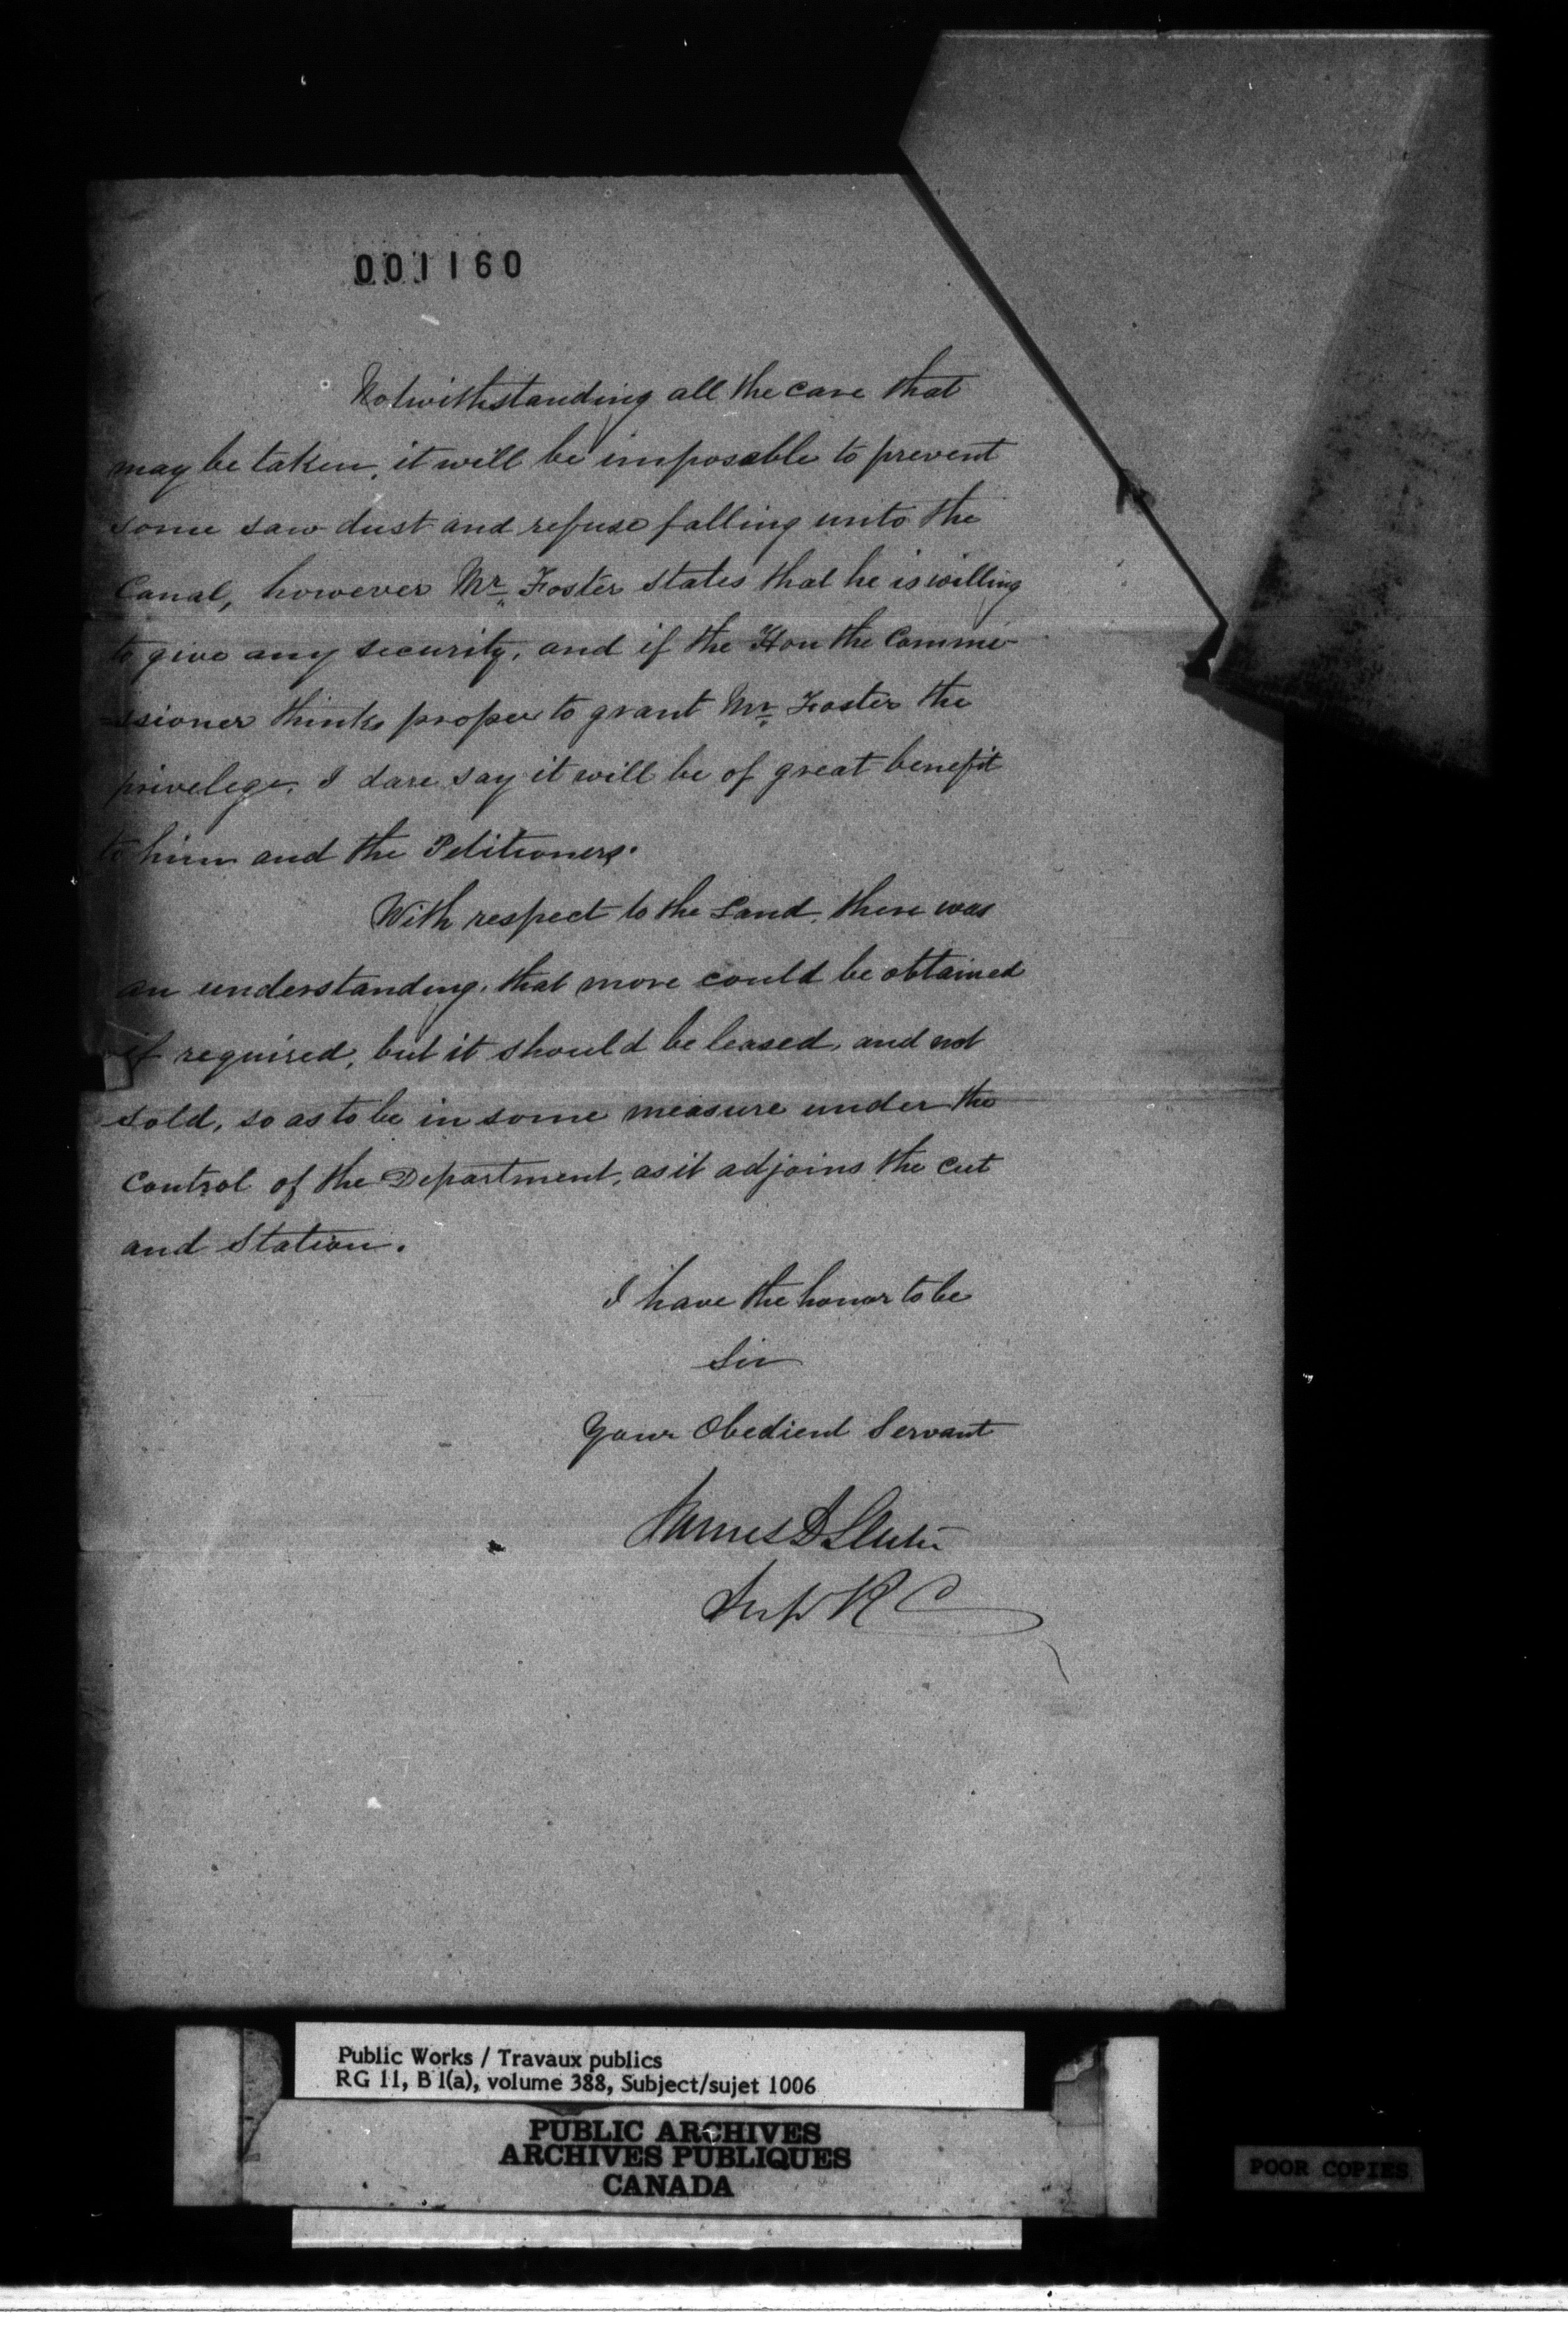 001160
Notwithstanding all the care that
may be taken, it will be imposable to prevent
some saw dust and refuse falling unto the
Canal, however Mr. Foster states that he is willing
to give any security, and if the Hon the Commi-
=ssioner thinks proper to grant Mr. Foster the
privelege, I dare say it will be of great benefit
to him and the Petitioners.
With respect to the Land, there was
an understanding, that more could be obtained
if required, but it should be leased, and not
sold, so as to be in some measure under the
Control of the Department, as it adjoins the Cut
and Station.
I have the honor to be
Sir
Your Obedient Servant
James D Slater
Supt R C
Public Works / Travaux publics
RG 11, B 1(a), volume 388, Subject/sujet 1006
PUBLIC ARCHIVES
ARCHIVES PUBLIQUES
CANADA
POOR COPIES